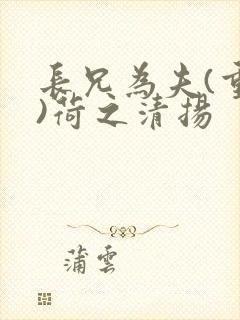 長兄為夫(重
)荷之清揚
蒲雲